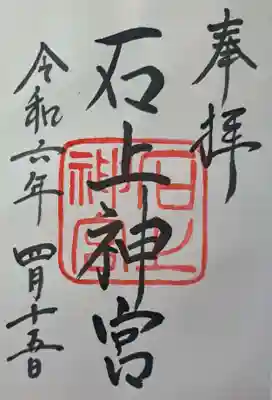 奉拝
石上神宮
石上神宮
令和六年 四月十五日